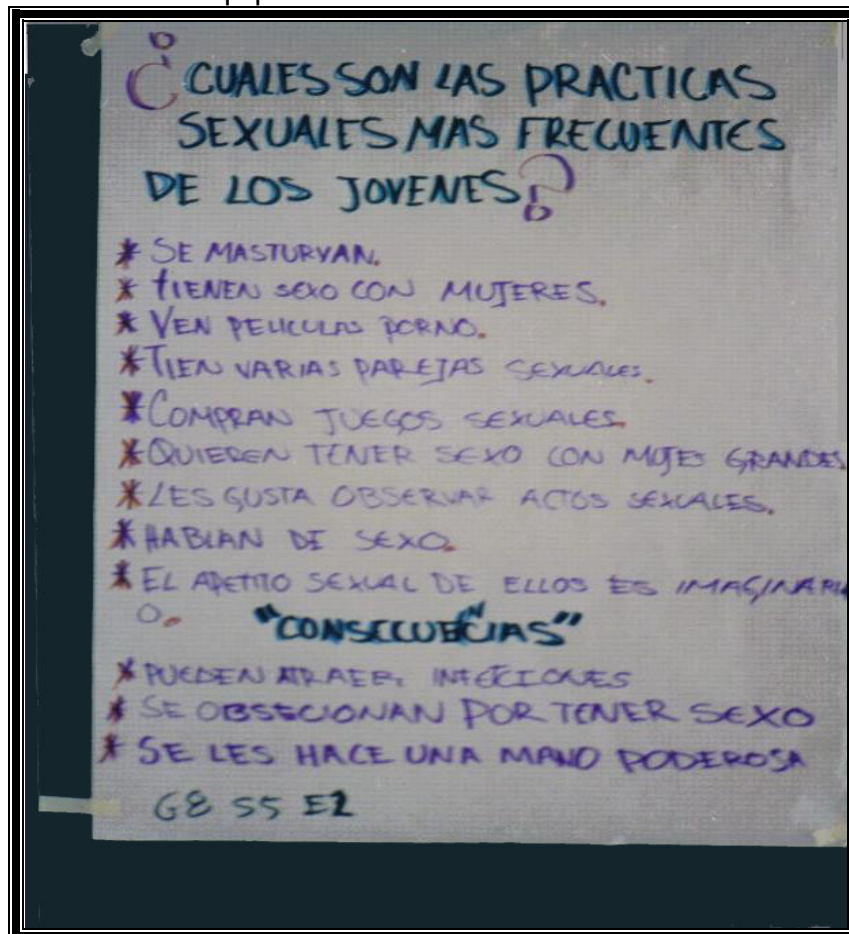 ¿CUALES SON LAS PRACTICAS
SEXUALES MAS FRECUENTES
DE LOS JOVENES?
* SE MASTURVAN.
* TIENEN SEXO CON MUJERES.
* VEN PELICULAS PORNO.
* TIEN VARIAS PAREJAS SEXUALES.
* COMPRAN JUEGOS SEXUALES.
* QUIEREN TENER SEXO CON MUJES GRANDES
* LES GUSTA OBSERVAR ACTOS SEXUALES.
* HABLAN DE SEXO.
* EL APETITO SEXUAL DE ELLOS ES IMAGINARI
O.
"CONSECUECIAS"
* PUEDEN ATRAER INFECCIONES
* SE OBSECIONAN POR TENER SEXO
* SE LES HACE UNA MANO PODEROSA
G8 S5 E2